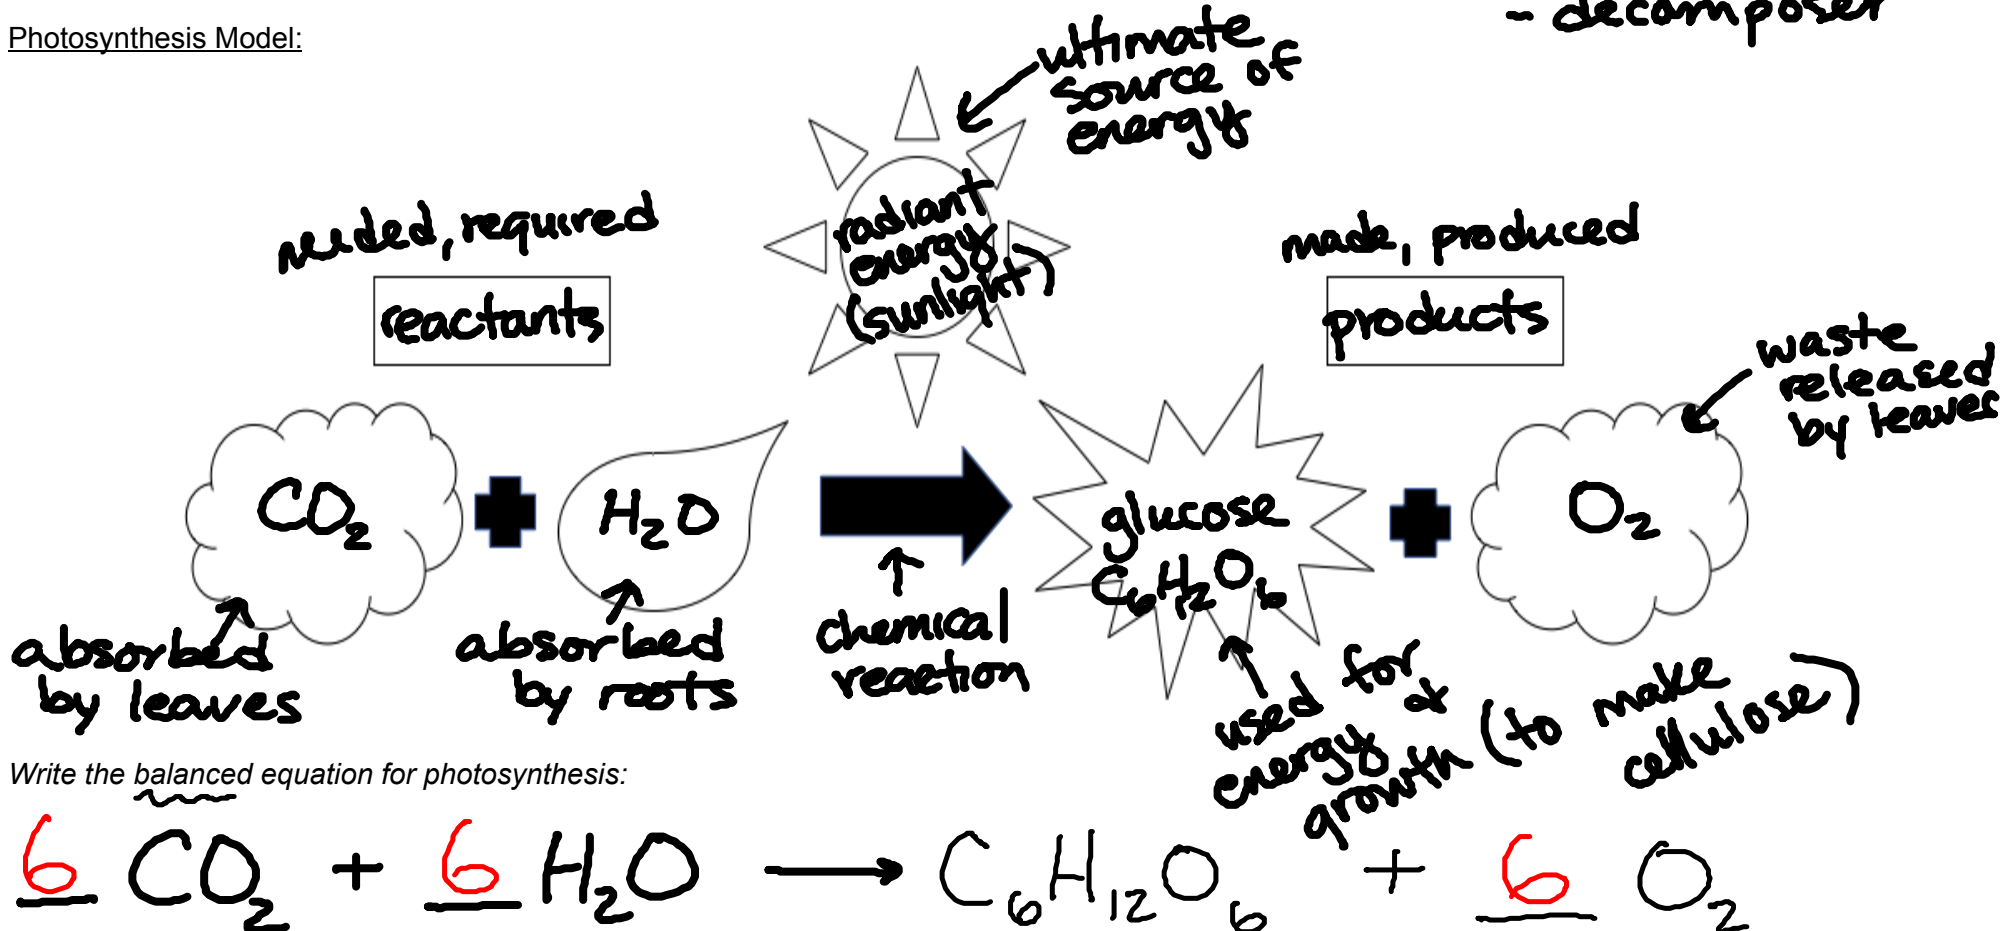 - decomposer
Photosynthesis Model:
ultimate
source of
energy
radiant
energy
(sunlight)
needed, required
reactants
made, produced
products
waste
released
by leaves
CO₂
H₂O
glucose
C₆H₁₂O₆
O₂
absorbed
by leaves
absorbed
by roots
chemical
reaction
used for
energy &
growth (to make
cellulose)
Write the balanced equation for photosynthesis:
6 CO₂ + 6 H₂O → C₆H₁₂O₆ + 6 O₂